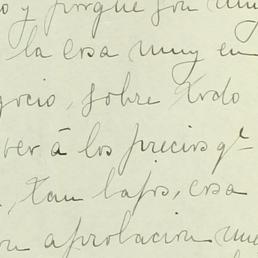 y porque son
la cosa muy en
gocio, sobre todo
ver á los precios qe
, tan bajos, cosa
aprobacion